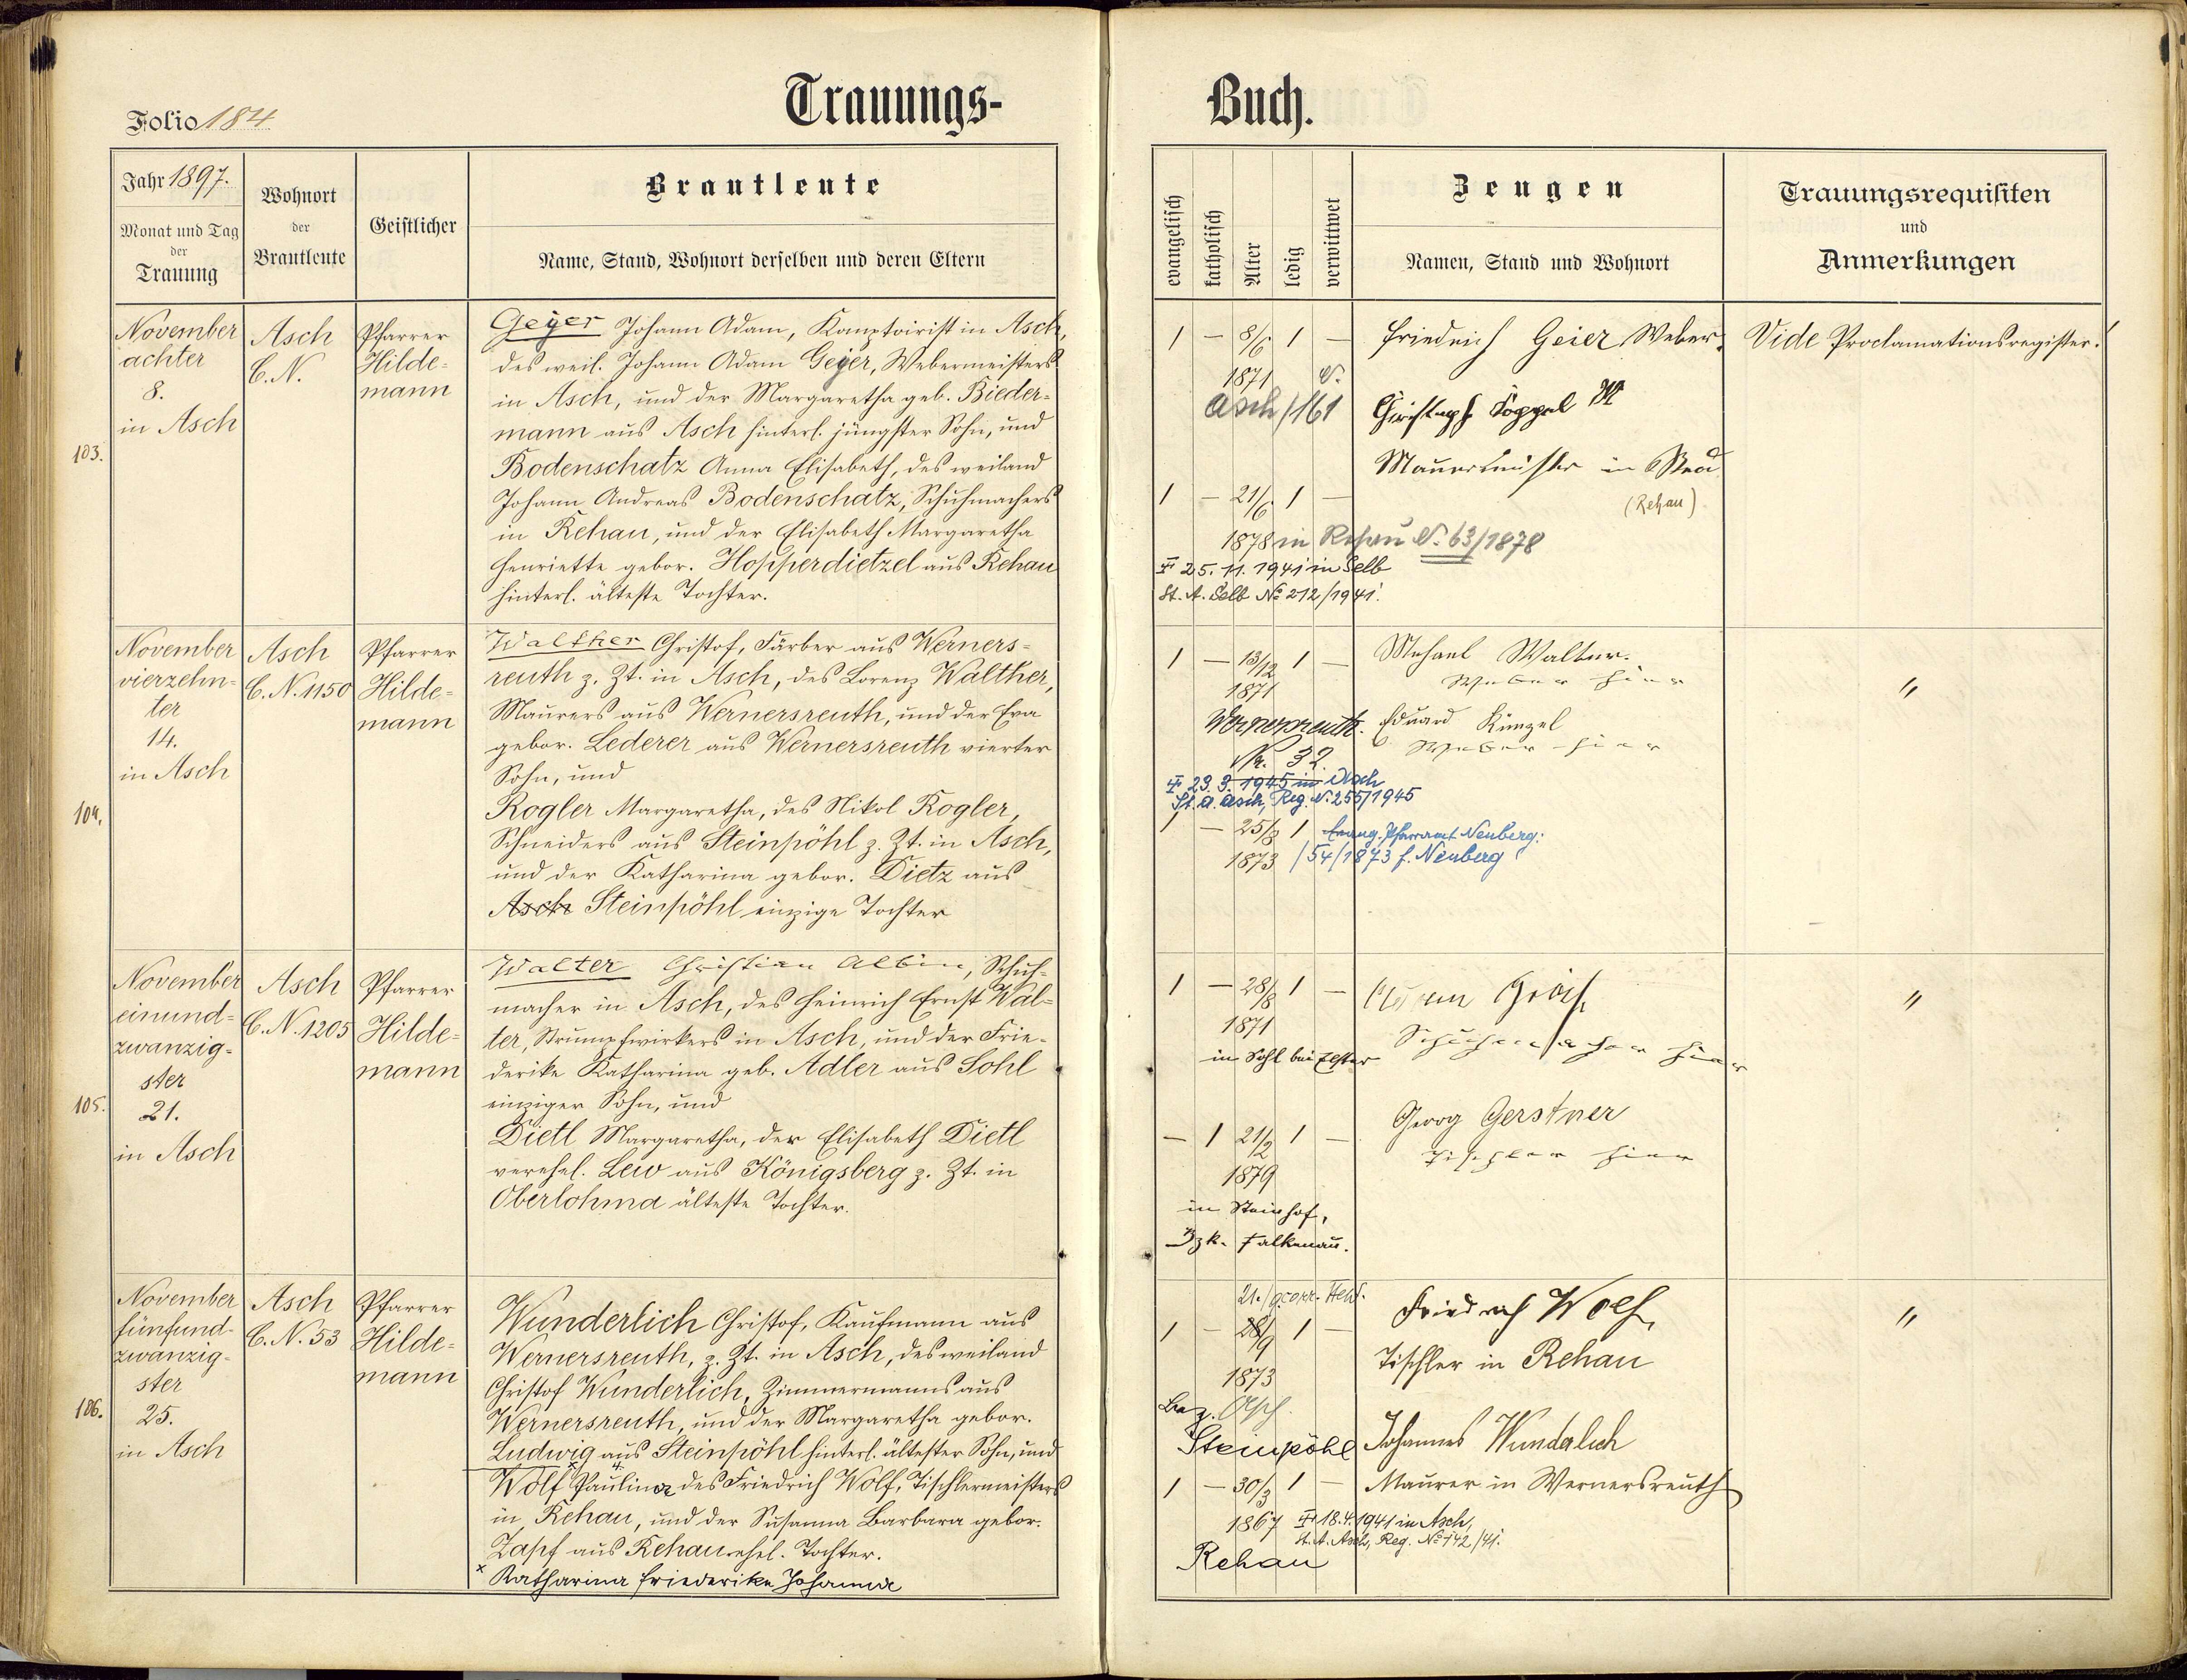 Trauungs-
Buch.
Folio 184
Jahr 1897.
Monat und Tag
der
Trauung
Wohnort
der
Brautleute
Geistlicher
Brautleute
Name, Stand, Wohnort derselben und deren Eltern
evangelisch
katholisch
Alter
ledig
verwittwet
Zeugen
Namen, Stand und Wohnort
Trauungsrequisiten
und
Anmerkungen
103.
November
achter
8.
in Asch
Asch
C.N.
Pfarrer
Hilde-
mann
Geyer Johann Adam, Komptoirist in Asch,
des weil. Johann Adam Geyer, Webermeisters
in Asch, und der Margaretha geb. Bieder-
mann aus Asch hinterl. jüngster Sohn, und
Bodenschatz Anna Elisabeth, des weiland
Johann Andreas Bodenschatz, Schuhmachers
in Rehau, und der Elisabeth Margaretha
Henriette gebor. Hopperdietzel aus Rehau
hinterl. älteste Tochter.
1 — 8/6 1 —
1871
Asch /161
1 — 21/6 1 —
1878 in Rehau N. 63/1878
25.11.1941 in Selb
St. A. Selb No 212/1941.
Friedrich Geier Weber.
Christoph
Maurermeister in
(Rehau)
Vide Proclamationsregister.
104.
November
vierzehn-
ter
14.
in Asch
Asch
C.N. 1150
Pfarrer
Hilde-
mann
Walther Christof, Färber aus Werners-
reuth z. Zt. in Asch, des Lorenz Walther,
Maurers aus Wernersreuth, und der Eva
gebor. Lederer aus Wernersreuth vierter
Sohn, und
Rogler Margaretha, des Nikol Rogler,
Schneiders aus Steinpöhl z. Zt. in Asch,
und der Katharina gebor. Dietz aus
Asch Steinpöhl einzige Tochter
1 — 13/12 1 —
1871
Wernersreuth.
Nr. 32.
23.3.1945 in Asch
St. A. Asch, Reg. N. 255/1945
1 — 25/8 1 Evang. Pfarramt Neuberg:
1873 /54/1873 f. Neuberg
Walter.
Weber hier
Eduard Künzel
Weber hier
"
105.
November
einund-
zwanzig-
ster
21.
in Asch
Asch
C.N. 1205
Pfarrer
Hilde-
mann
Walter Christian Albin, Schuh-
macher in Asch, des Heinrich Ernst Wal-
ter, Strumpfwirkers in Asch, und der Frie-
derike Katharina geb. Adler aus Sohl
einziger Sohn, und
Dietl Margaretha, der Elisabeth Dietl
verehel. Lew aus Königsberg z. Zt. in
Oberlohma älteste Tochter.
1 — 28/8 1 —
1871
in Sohl bei Elster
— 1 21/2 1 —
1879
in Steinhof,
Bzk. Falkenau.
Schuhmacher hier
Georg Gerstner
Tischler hier
"
106.
November
fünfund-
zwanzig-
ster
25.
in Asch
Asch
C.N. 53
Pfarrer
Hilde-
mann
Wunderlich Christof, Kaufmann aus
Wernersreuth, z. Zt. in Asch, des weiland
Christof Wunderlich, Zimmermanns aus
Wernersreuth, und der Margaretha gebor.
Ludwig aus Steinpöhl hinterl. ältester Sohn, und
Wolf x Paulina des Friedrich Wolf, Tischlermeisters
in Rehau, und der Susanna Barbara gebor.
Zapf aus Rehau ehel. Tochter.
x Katharina Friederike Johanna
21./9 corr.
1 — 1 —
1873
Bez. Asch.
Steinpöhl
1 — 30/3 1 —
1867
18.4.1941 in Asch,
St. A. Asch, Reg. No 142/41.
Rehau
Friedrich Wolf,
Tischler in Rehau
Johannes Wunderlich
Maurer in Wernersreuth
"